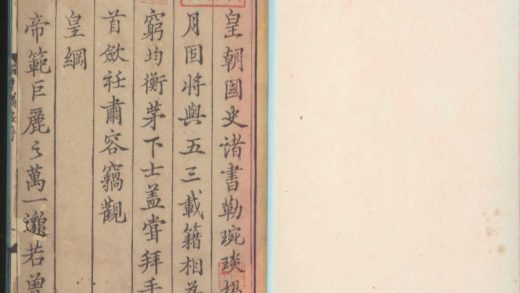 皇朝國史諸書勒琬琰揭
月固將與五三載籍相為
窮均衡茅下士盖嘗拜手
首斂衽肅容竊觀
皇綱
帝範巨麗之萬一邈若曾